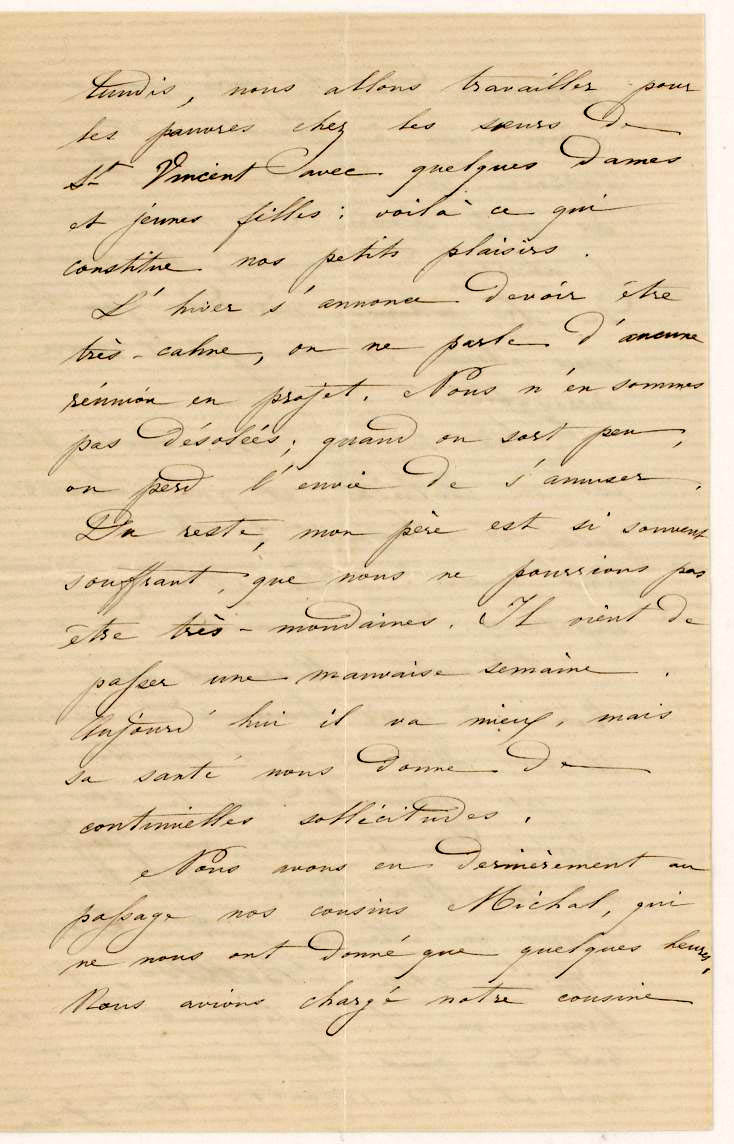 lundis, nous allons travailler pour
les pauvres chez les sœurs de
St Vincent avec quelques dames
et jeunes filles : voilà ce qui
constitue nos petits plaisirs.
L'hiver s'annonce devoir être
très-calme, on ne parle d'aucune
réunion en projet. Nous n'en sommes
pas désolées ; quand on sort peu,
on perd l'envie de s'amuser.
Du reste, mon père est si souvent
souffrant, que nous ne pourrions pas
être très-mondaines. Il vient de
passer une mauvaise semaine.
Aujourd'hui il va mieux, mais
sa santé nous donne de
continuelles sollicitudes.
Nous avons eu dernièrement au
passage nos cousins Michal, qui
ne nous ont donné que quelques heures.
Nous avions chargé notre cousine